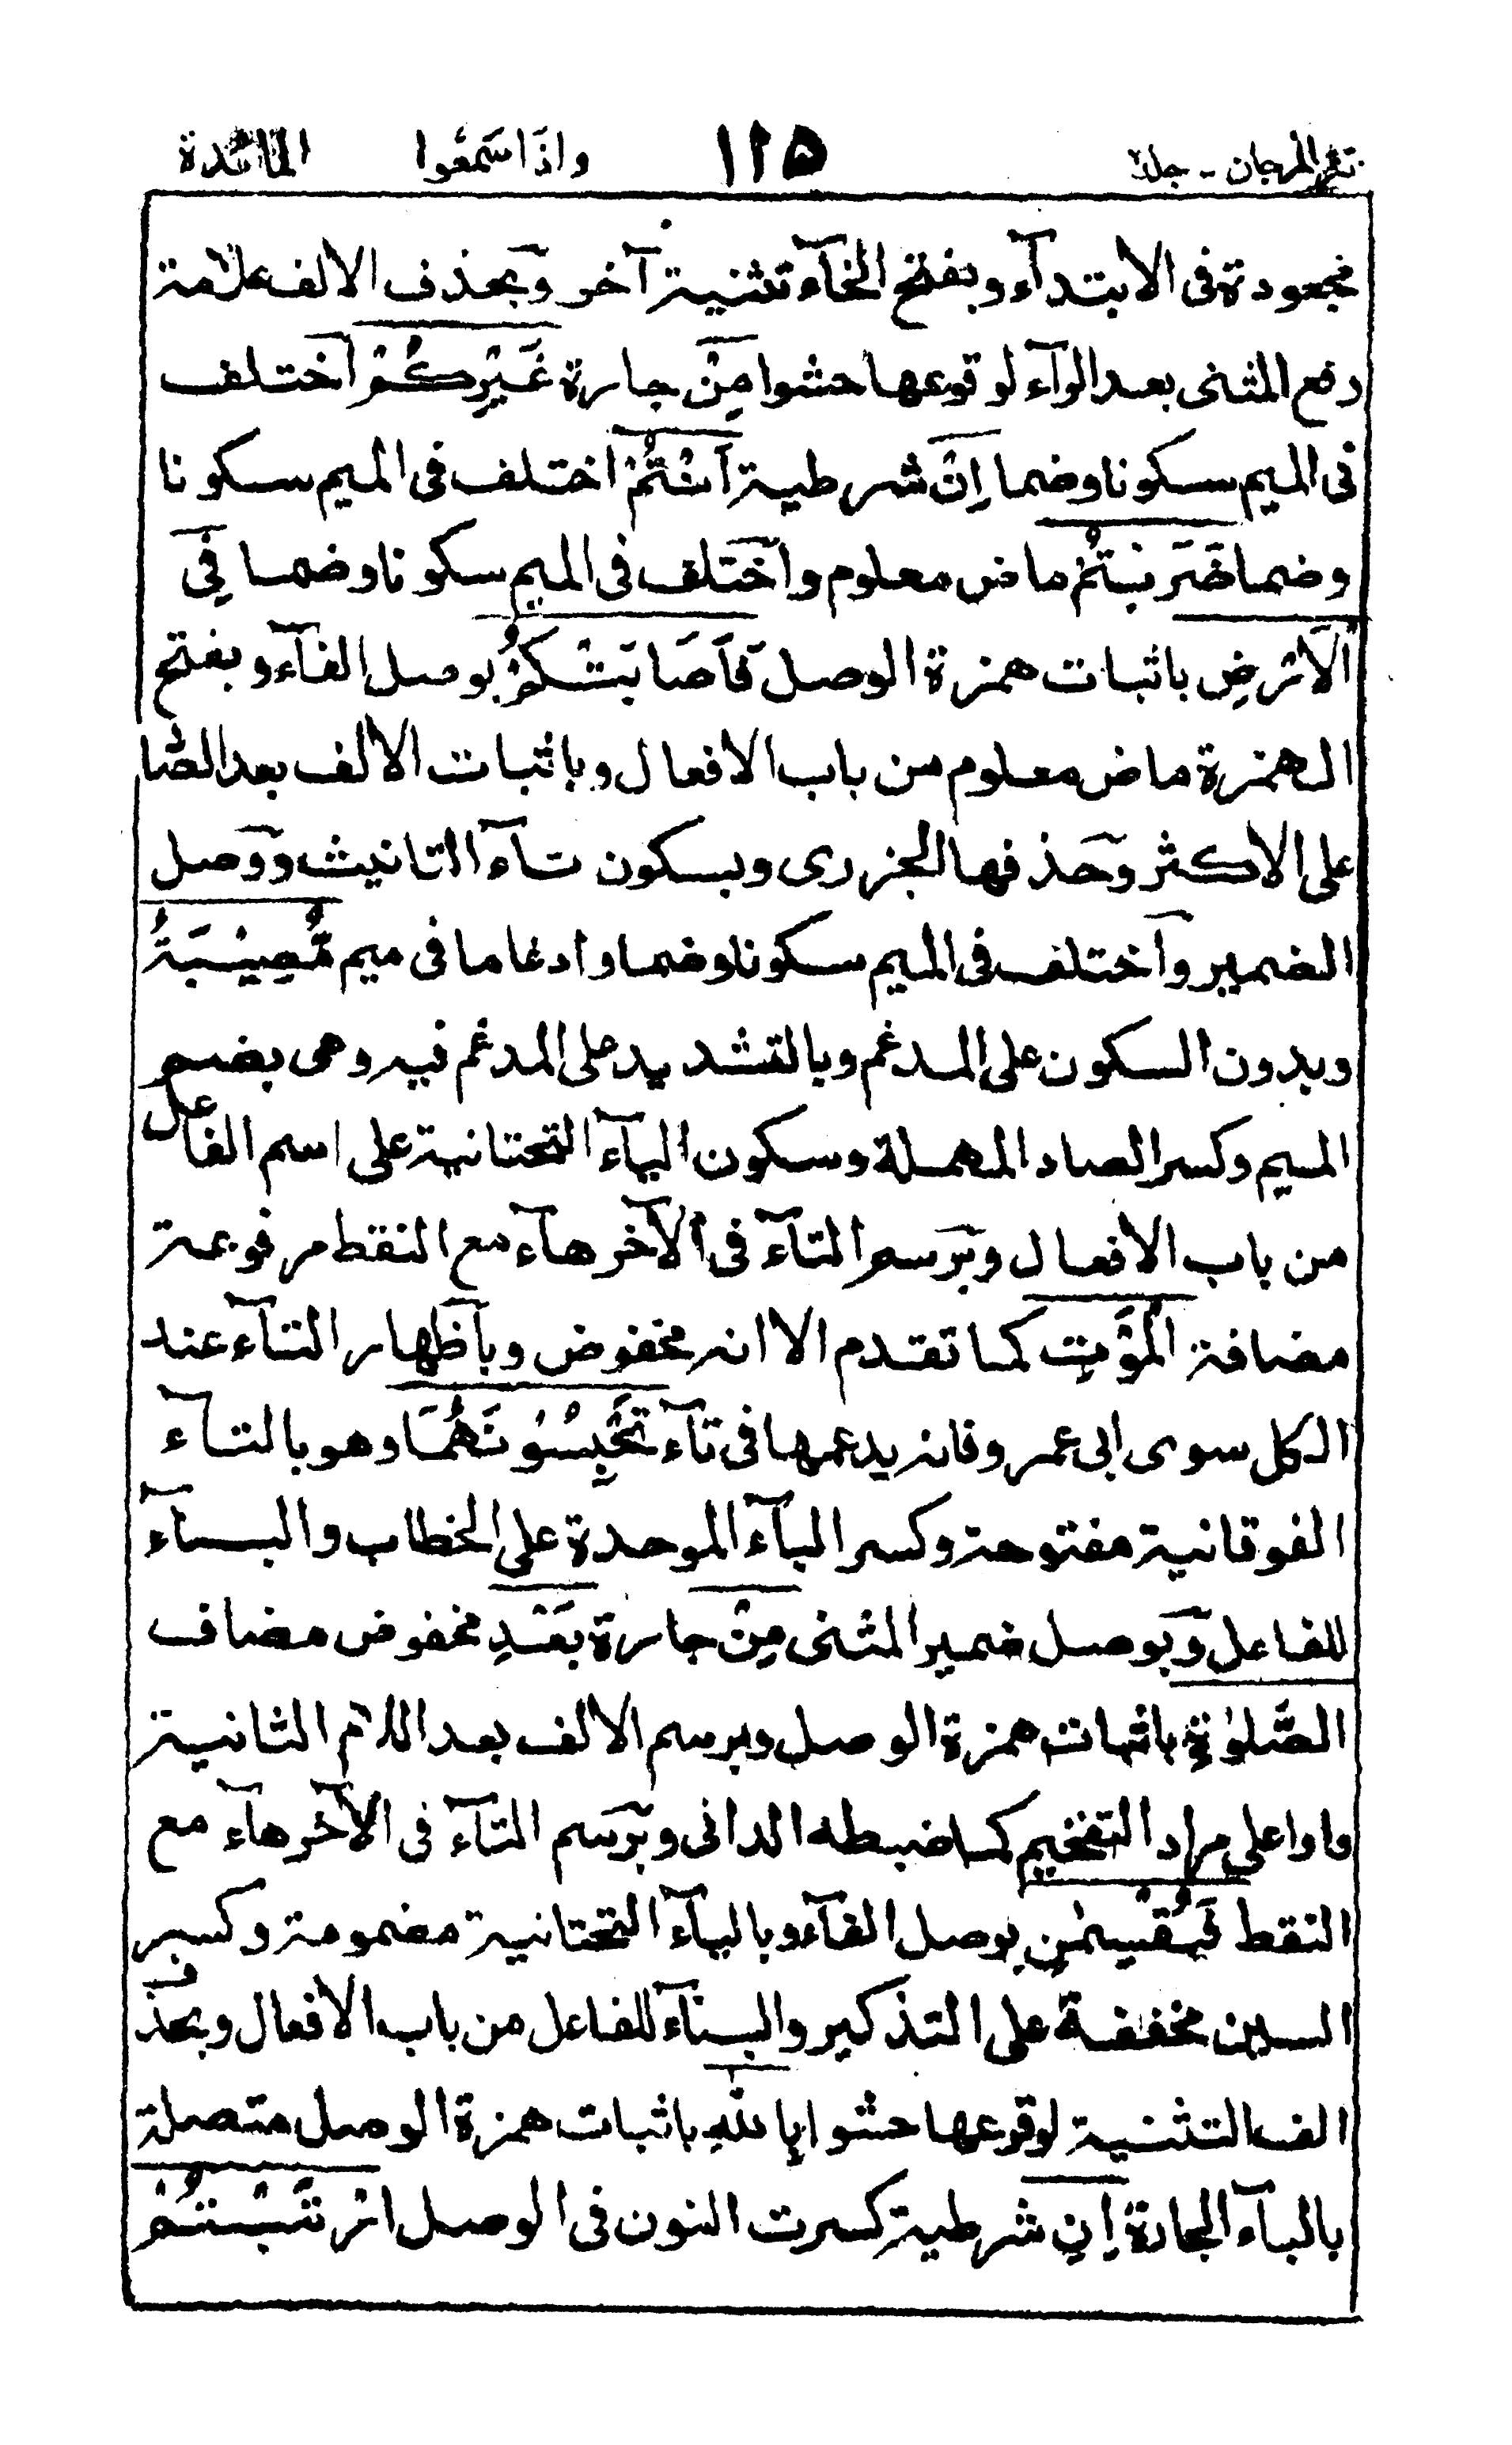 نثر المرجان - جلد ٢ ١٢٥ واذا سمعوا المائدة
مجعودة فى الابتدآء وبفتح الخآء تثنية آخر وبحذف الالف علامة
رفع المثنى بعد الرآء لوقوعها حشوا مِنْ جارة غَيْرِكُمْ اختلف
فى الميم سكونا وضما اِنْ شرطية اَنْتُمْ اختلف فى الميم سكونا
وضما ضَرَبْتُمْ ماض معلوم واختلف فى الميم سكونا وضما فِى
الْاَرْضِ باثبات همزة الوصل فَاَصَابَتْكُمْ بوصل الفآء وبفتح
الهمزة ماض معلوم من باب الافعال وباثبات الالف بعد الصا
على الاكثر وحذفها الجزرى وبسكون تآء التانيث ووصل
الضمير واختلف فى الميم سكونا وضما وادغاما فى ميم مُّصِيْبَةُ
وبدون السكون على المدغم وبالتشديد على المدغم فيه وهى بضم
الميم وكسر الصاد المهملة وسكون اليآء التحتانية على اسم الفاعل
من باب الافعال وبرسم التآء فى الآخر هآء مع النقط مرفوعة
مضافة الْمَوْتِ كما تقدم الا انه مخفوض وباظهار التآء عند
الكل سوى ابى عمرو فانه يدغمها فى تآء تَحْبِسُوْنَهُمَا وهو بالتآء
الفوقانية مفتوحة وكسر البآء الموحدة على الخطاب والبنآء
للفاعل وبوصل ضمير المثنى مِنْ جارة بَعْدِ مخفوض مضاف
الصَّلٰوةِ باثبات همزة الوصل وبرسم الالف بعد اللام الثانية
واوا على مراد التفخيم كما ضبطه الدانى وبرسم التآء فى الآخر هآء مع
النقط فَيُقْسِمٰنِ بوصل الفآء وباليآء التحتانية مضمومة وكسر
السين مخففة على التذكير والبنآء للفاعل من باب الافعال وبحذف
الف التثنية لوقوعها حشوا بِاللّٰهِ باثبات همزة الوصل متصلة
بالبآء الجارة اِنِ شرطية كسرت النون فى الوصل ارْتَبْتُمْ